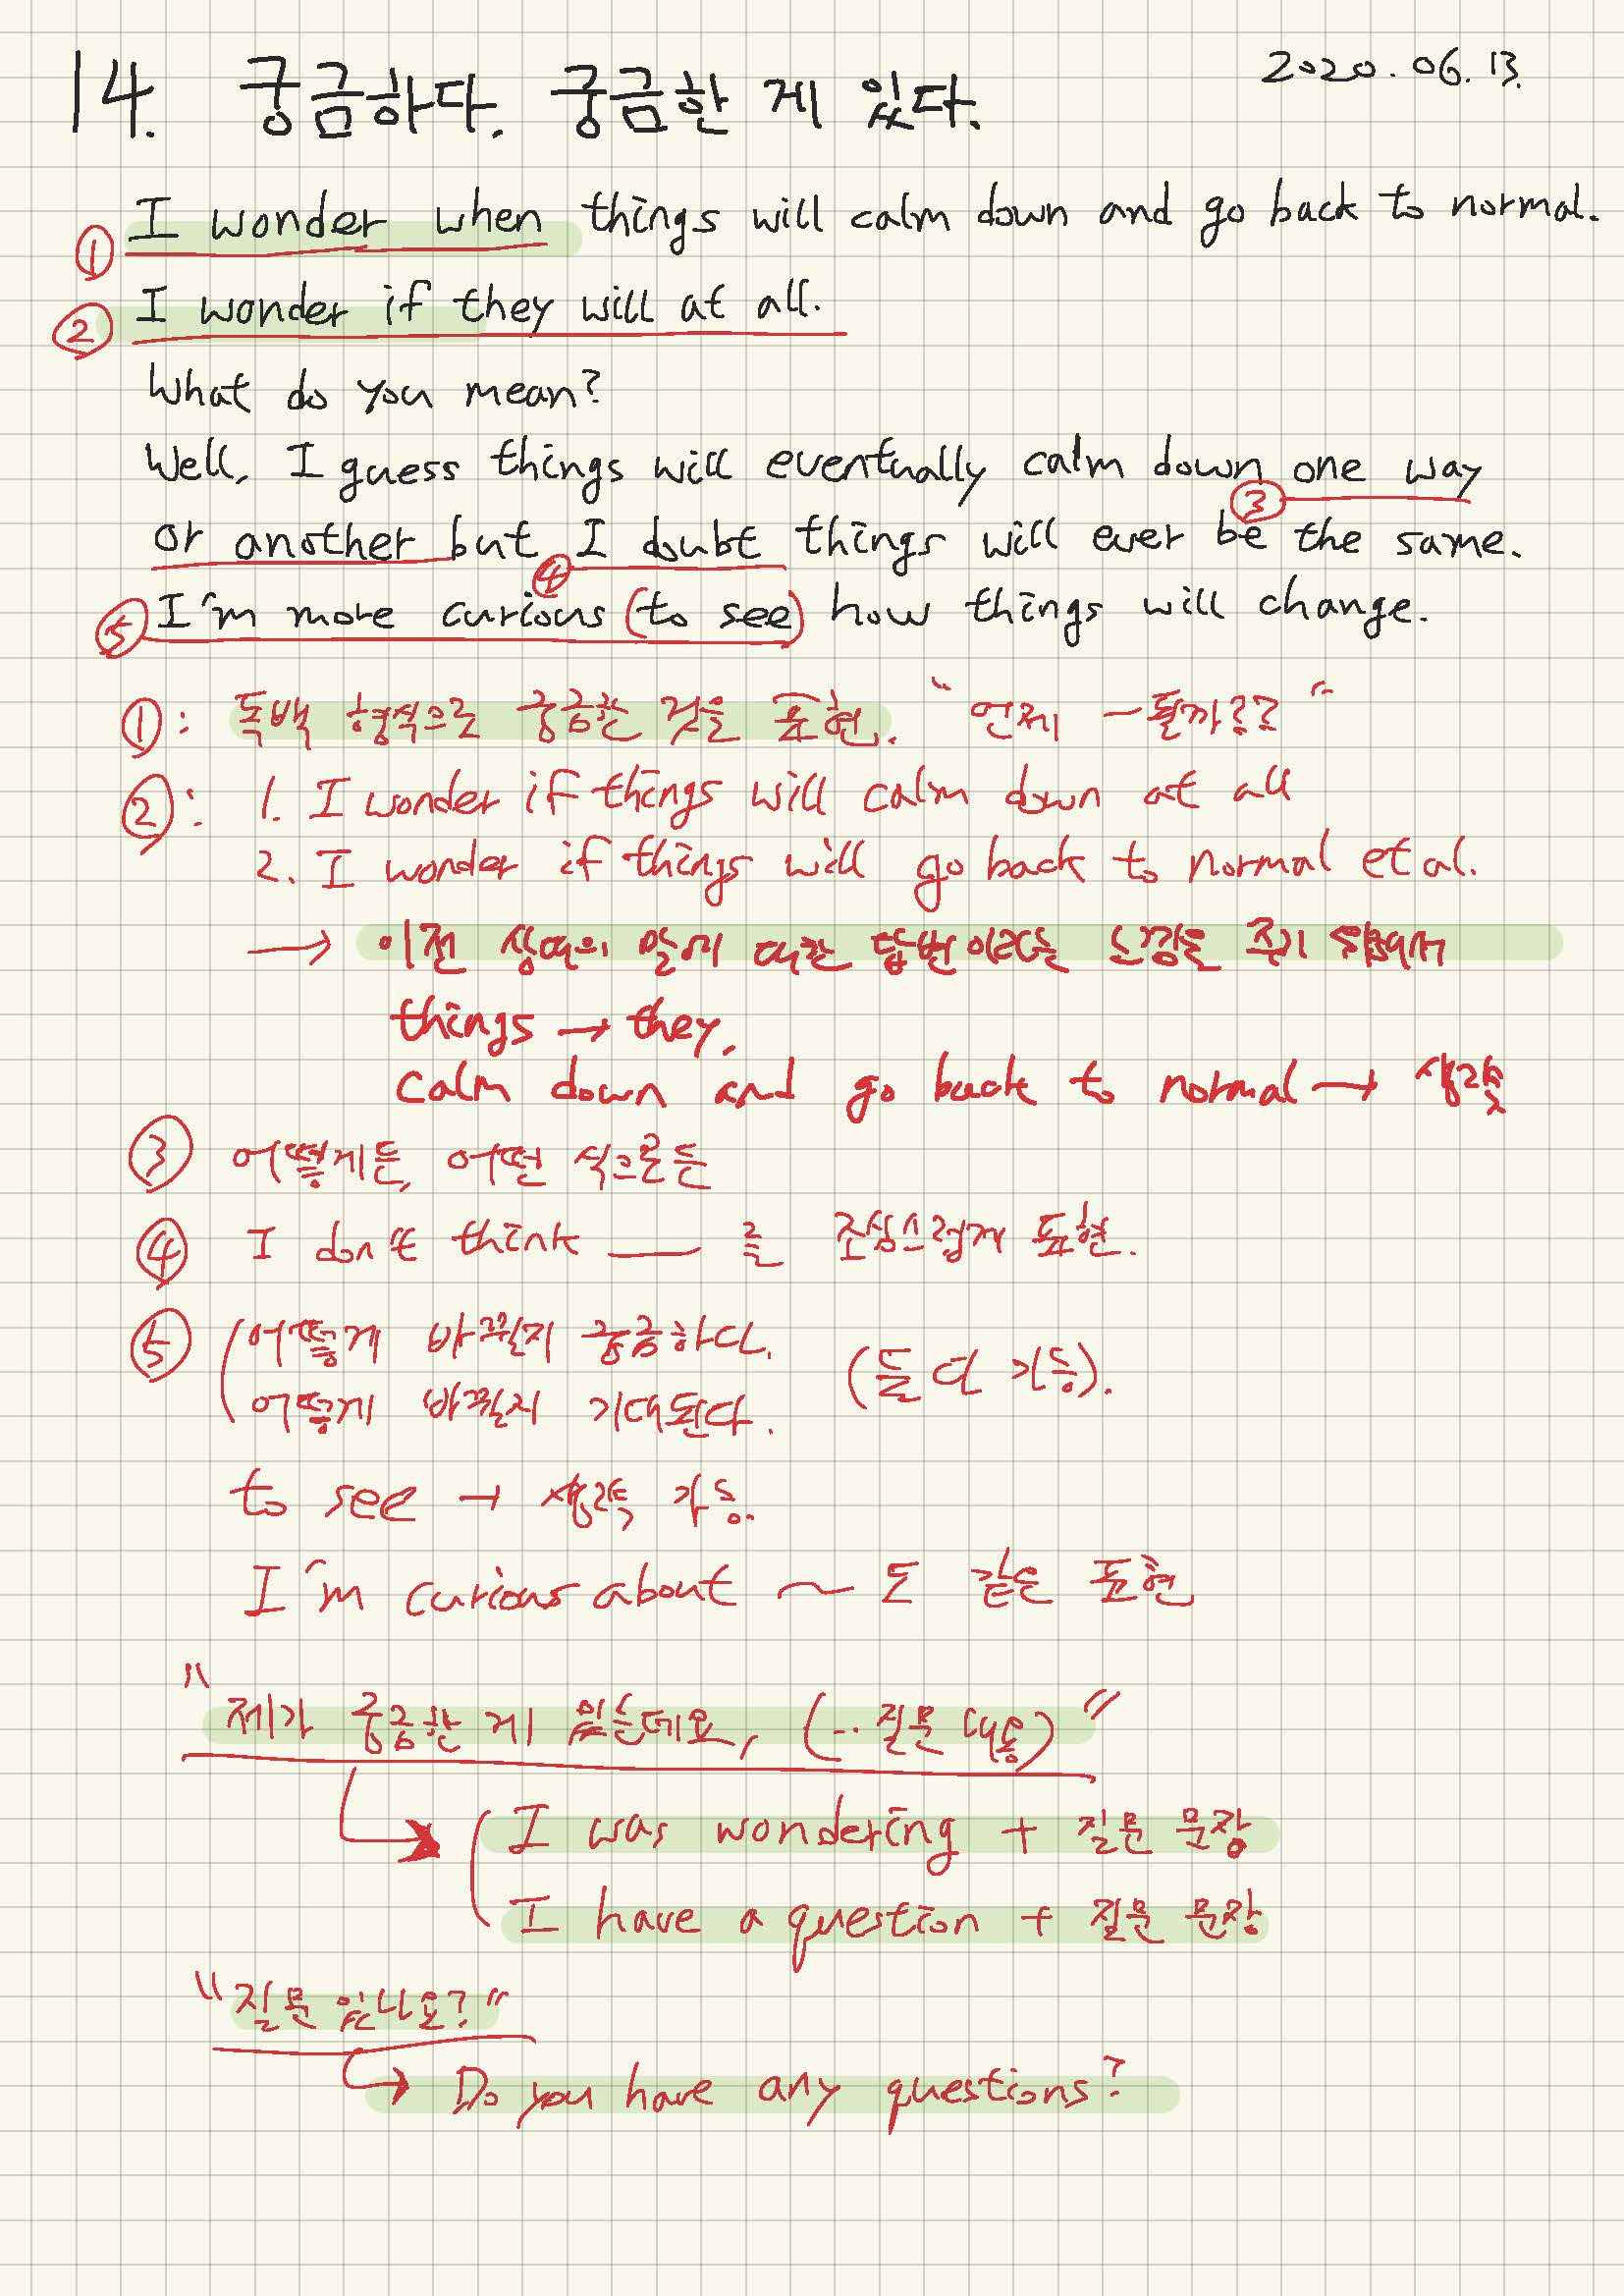 14. 궁금하다. 궁금한 게 있다.
2020.06.13.
① I wonder when things will calm down and go back to normal.
② I wonder if they will at all.
What do you mean?
Well, I guess things will eventually calm down ③ one way
or another but ④ I doubt things will ever be the same.
⑤ I'm more curious (to see) how things will change.
①: 독백 형식으로 궁금한 것을 표현. "언제 ~될까??"
②: 1. I wonder if things will calm down at all
2. I wonder if things will go back to normal et al.
→ 이전 상대의 말에 대한 답변이라는 느낌을 주기 위해서
things → they,
calm down and go back to normal → 생략
③ 어떻게든, 어떤 식으로든
④ I don't think ___ 를 조심스럽게 표현.
⑤ (어떻게 바뀔지 궁금하다.
어떻게 바뀔지 기대된다. (둘 다 가능).
to see → 생략 가능.
I'm curious about ~ 도 같은 표현
"제가 궁금한 게 있는데요, (.. 질문 내용)"
→ (I was wondering + 질문 문장
I have a question + 질문 문장
"질문 있나요?"
→ Do you have any questions?